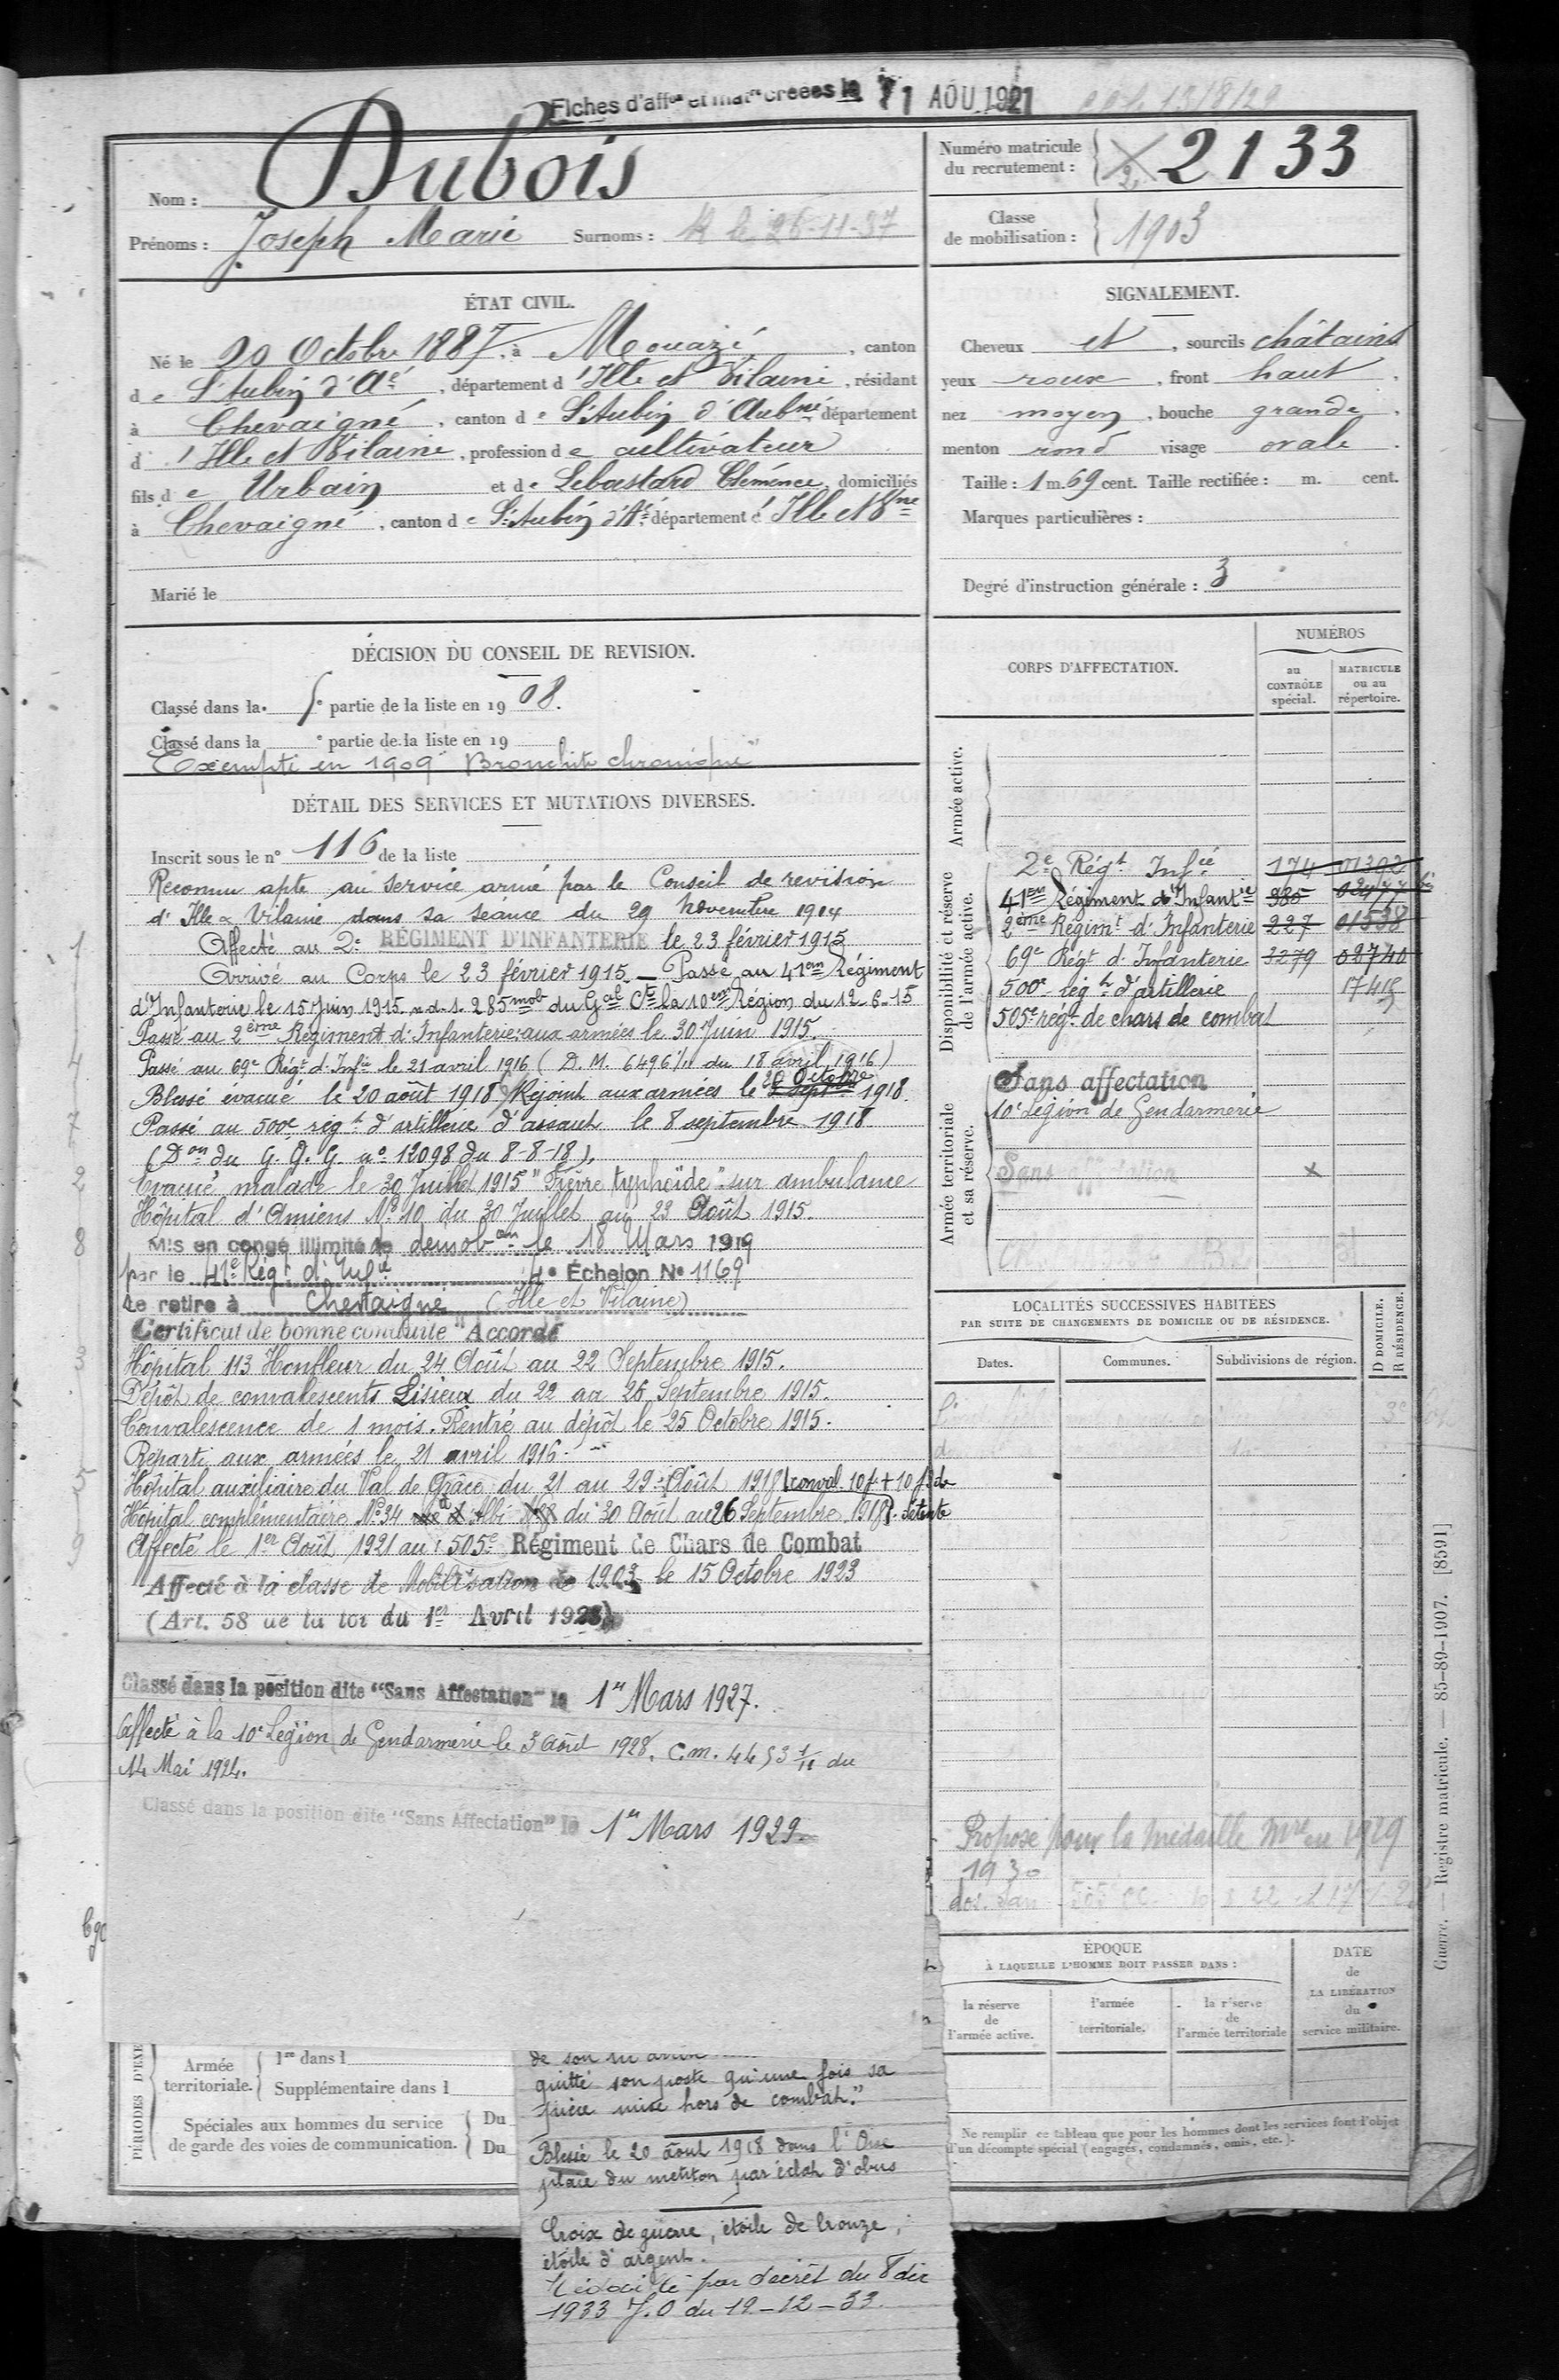 Fiches d'aff<sup>on</sup> et mat<sup>le</sup> créées le 11 AOU 1921
13/8/29
Nom : Dubois
Prénoms : Joseph Marie Surnoms : R le 26-11-37
Numéro matricule du recrutement : 2133
Classe de mobilisation : 1903
ÉTAT CIVIL.
Né le 20 Octobre 1887, à Mouazé, canton
de St Aubin d'Aé, département d'Ille et Vilaine, résidant
à Chevaigné, canton de St Aubin d'Aubné, département
d'Ille et Vilaine, profession de cultivateur
fils de Urbain et de Lebastard Clémence, domiciliés
à Chevaigné, canton de St Aubin d'Aé, département d'Ille et Vne
Marié le
SIGNALEMENT.
Cheveux et, sourcils châtains
yeux roux, front haut,
nez moyen, bouche grande,
menton rond visage ovale.
Taille : 1 m. 69 cent. Taille rectifiée : m. cent.
Marques particulières :
Degré d'instruction générale : 3
DÉCISION DU CONSEIL DE REVISION.
Classé dans la 5e partie de la liste en 1908.
Classé dans la e partie de la liste en 19
Exempté en 1909 "Bronchite chronique"
DÉTAIL DES SERVICES ET MUTATIONS DIVERSES.
Inscrit sous le n° 116 de la liste
Reconnu apte au service armé par le Conseil de revision
d'Ille & Vilaine dans sa séance du 29 Novembre 1914
Affecté au 2e RÉGIMENT D'INFANTERIE le 23 février 1915
Arrivé au Corps le 23 février 1915 — Passé au 41em Régiment
d'Infanterie le 15 Juin 1915 n.d.s. 285 mob du Gal Ct la 10em Région du 12-6-15
Passé au 2ème Régiment d'Infanterie aux armées le 30 Juin 1915.
Passé au 69e Régt d'Infie le 21 avril 1916 (D.M. 6496 1/11 du 18 avril 1916)
Blessé évacué le 20 août 1918 Rejoint aux armées le 20 Octobre 2 sept 1918.
Passé au 500e régt d'artillerie d'assaut le 8 septembre 1918
(Don du G.Q.G. n° 12098 du 8-8-18).
Evacué malade le 30 Juillet 1915 "Fièvre typhoïde" sur ambulance
Hôpital d'Amiens No 10 du 30 Juillet au 23 Août 1915.
Mis en congé illimité de démobon le 18 Mars 1919
par le 41e Régt d'Infie 4e Échelon No 1169
Se retire à Chevaigné (Ille et Vilaine)
Certificat de bonne conduite "Accordé"
Hôpital 113 Honfleur du 24 Août au 22 Septembre 1915.
Dépôt de convalescents Lisieux du 22 au 26 Septembre 1915.
Convalescence de 1 mois. Rentré au dépôt le 25 Octobre 1915.
Reparti aux armées le 21 avril 1916.
Hôpital auxiliaire du Val de Grâce du 21 au 29 Août 1918 conval 10 j + 10 j de
Hôpital complémentaire No 34 Albi du 30 Août au 26 Septembre 1918. détente
Affecté le 1er Août 1921 au 505e Régiment de Chars de Combat
Affecté à la classe de Mobilisation de 1903 le 15 Octobre 1923
(Art. 58 de la loi du 1er Avril 1923)
Classé dans la position dite "Sans Affectation" le 1er Mars 1927.
Affecté à la 10e Légion de Gendarmerie le 3 août 1928. C.M. 4453 1/11 du
14 Mai 1924.
Classé dans la position dite "Sans Affectation" le 1er Mars 1929
1
4
7
2
8
3
5
9
CORPS D'AFFECTATION.
NUMÉROS
au CONTRÔLE spécial.
MATRICULE ou au répertoire.
Armée active.
Disponibilité et réserve de l'armée active.
2e Régt Infie 174 01392
41em Régiment d'Infantie 985 03477 bis
2ème Régimt d'Infanterie 227 01538
69e Régt d'Infanterie 3279 08740
500e régt d'artillerie 17415
505e régt de chars de combat
Armée territoriale et sa réserve.
Sans affectation
10e Légion de Gendarmerie
Sans affectation x
LOCALITÉS SUCCESSIVES HABITÉES
PAR SUITE DE CHANGEMENTS DE DOMICILE OU DE RÉSIDENCE.
Dates. Communes. Subdivisions de région. D DOMICILE. R RÉSIDENCE.
Proposé pour la médaille Mre en 1929
1930
dos. 505 CC
ÉPOQUE
À LAQUELLE L'HOMME DOIT PASSER DANS :
la réserve de l'armée active.
l'armée territoriale.
la réserve de l'armée territoriale
DATE de LA LIBÉRATION du service militaire.
Ne remplir ce tableau que pour les hommes dont les services font l'objet
d'un décompte spécial (engagés, condamnés, omis, etc.).
PÉRIODES D'EXE
Armée territoriale. 1re dans l
Supplémentaire dans l
Spéciales aux hommes du service de garde des voies de communication. Du
Du
de son
quitté son poste qu'une fois sa
pièce mise hors de combat."
Blessé le 20 août 1918 dans l'Oise
plaie du menton par éclat d'obus
Croix de guerre, étoile de bronze,
étoile d'argent.
Médaillé par décret du 8 déc
1933 J.O du 19-12-33.
Guerre. — Registre matricule. — 85-89-1907. [8591]